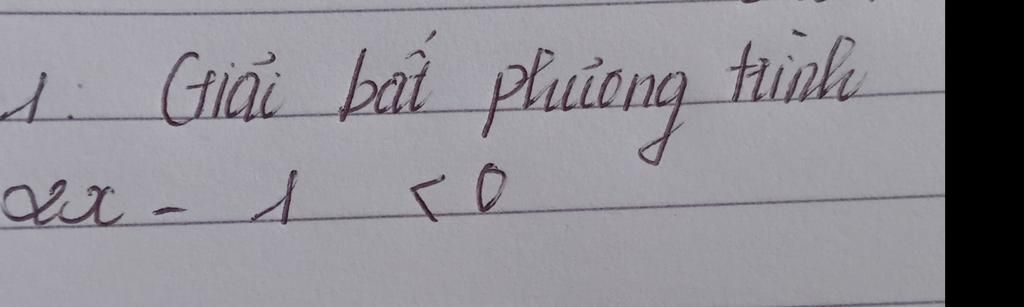 1. Giải bất phương trình
2x - 1 < 0